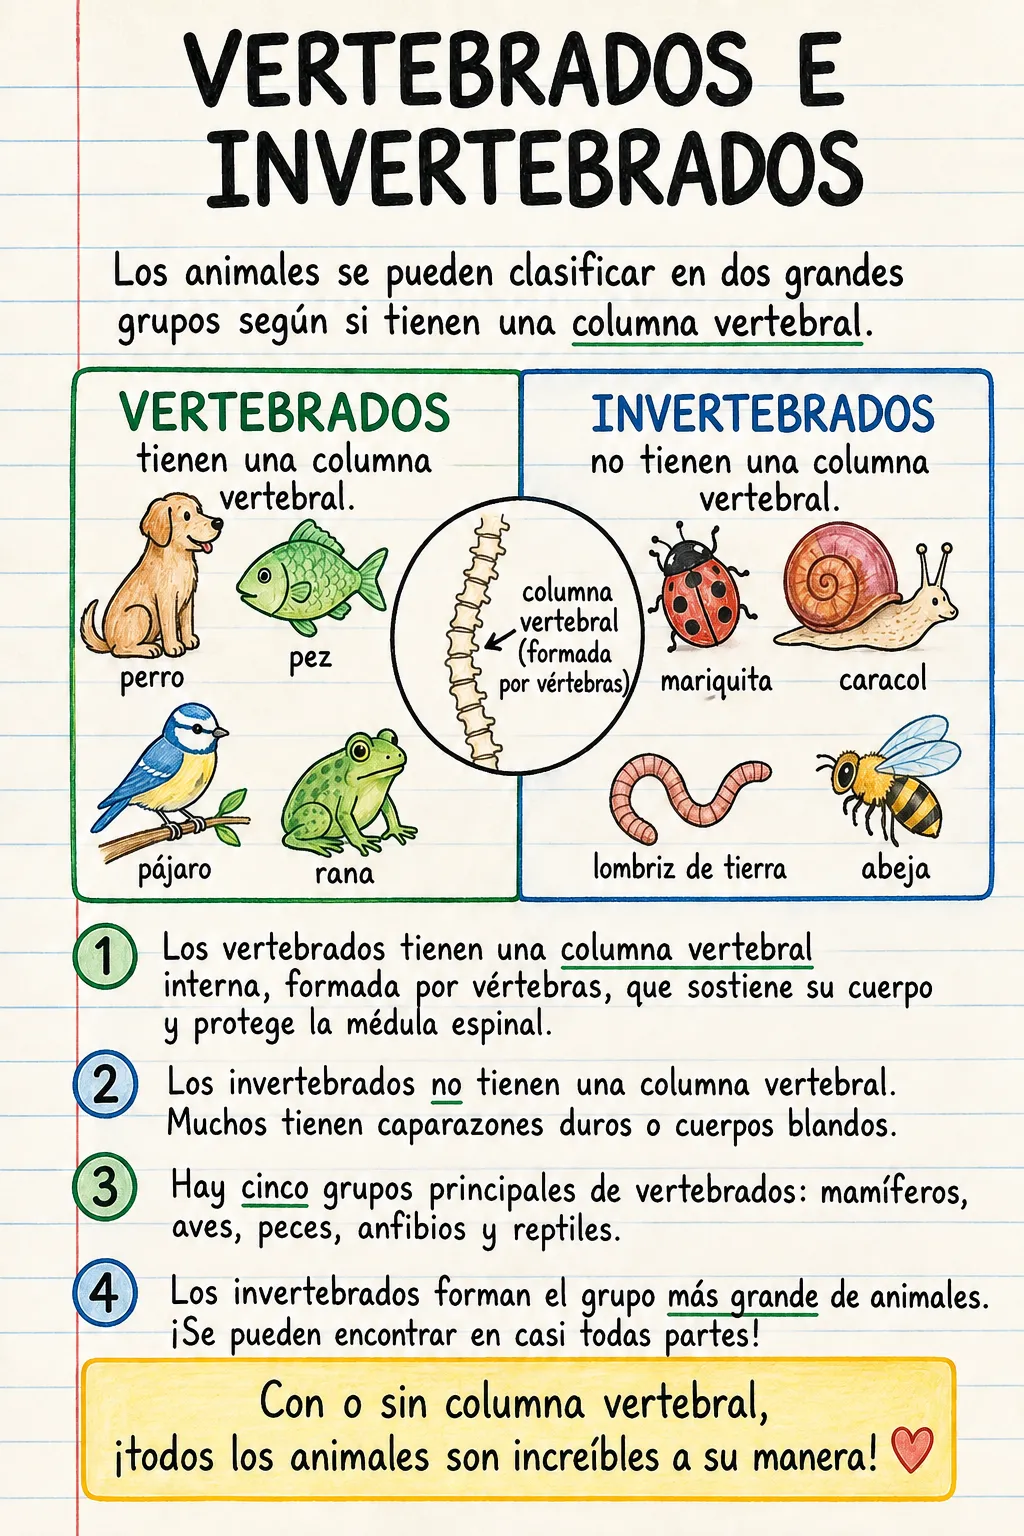 VERTEBRADOS E
INVERTEBRADOS
Los animales se pueden clasificar en dos grandes
grupos según si tienen una columna vertebral.
VERTEBRADOS
tienen una columna
vertebral.
perro
pez
pájaro
rana
columna
vertebral
(formada
por vértebras)
INVERTEBRADOS
no tienen una columna
vertebral.
mariquita
caracol
lombriz de tierra
abeja
1 Los vertebrados tienen una columna vertebral
interna, formada por vértebras, que sostiene su cuerpo
y protege la médula espinal.
2 Los invertebrados no tienen una columna vertebral.
Muchos tienen caparazones duros o cuerpos blandos.
3 Hay cinco grupos principales de vertebrados: mamíferos,
aves, peces, anfibios y reptiles.
4 Los invertebrados forman el grupo más grande de animales.
¡Se pueden encontrar en casi todas partes!
Con o sin columna vertebral,
¡todos los animales son increíbles a su manera!